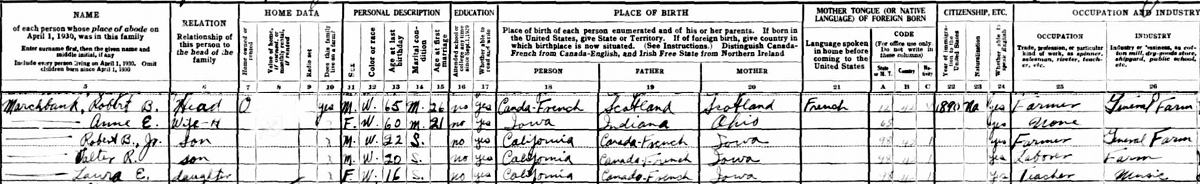 NAME RELATION HOME DATA PERSONAL DESCRIPTION EDUCATION PLACE OF BIRTH MOTHER TONGUE (OR NATIVE LANGUAGE) OF FOREIGN BORN CITIZENSHIP, ETC. OCCUPATION AND INDUSTRY
of each person whose place of abode on April 1, 1930, was in this family
Enter surname first, then the given name and middle initial, if any
Include every person living on April 1, 1930. Omit children born since April 1, 1930
Relationship of this person to the head of the family
Home owned or rented
Radio set
Does this family live on a farm?
Sex
Color or race
Age at last birthday
Marital condition
Age at first marriage
Place of birth of each person enumerated and of his or her parents. If born in the United States, give State or Territory. If of foreign birth, give country in which birthplace is now situated. (See Instructions.) Distinguish Canada-French from Canada-English, and Irish Free State from Northern Ireland
PERSON FATHER MOTHER
Language spoken in home before coming to the United States
CODE
(For office use only. Do not write in these columns)
State or M. T. Country Nativity
Year of immigration to the United States
Naturalization
Whether able to speak English
OCCUPATION
Trade, profession, or particular kind of work, as spinner, salesman, riveter, teacher, etc.
INDUSTRY
Industry or business, as cotton mill, dry-goods store, shipyard, public school, etc.
5 6 7 8 9 10 11 12 13 14 15 16 17 18 19 20 21 A B C 22 23 24 25 26
Marchbank, Robert B. Head O yes M. W. 65 M. 26 no yes Canda-French Scotland Scotland French Na yes Farmer General Farm
— Anne E. Wife-H F. W. 60 M. 21 no yes Iowa Indiana Ohio yes None
— Robert B., Jr. son M. W. 22 S. no yes California Canada-French Iowa yes Farmer General Farm
— Walter R. son M. W. 20 S. no yes California Canada-French Iowa yes Laborer Farm
— Laura E. daughter F. W. 16 S. yes California Canada-French Iowa yes Teacher Music